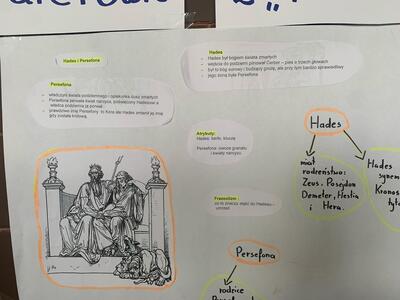 Hades i Persefona
Persefona
- władczyni świata podziemnego i opiekunka dusz zmarłych
- Persefona porwała
- prawdziwe imię Persefony to Kora ale Hades zmienił jej imię
gdy została królową.
Hades
- Hades był bogiem świata zmarłych
- wejścia do podziemi pilnował Cerber – pies o trzech głowach
- był to bóg surowy i budzący grozę, ale przy tym bardzo sprawiedliwy
- jego żoną była Persefona
Atrybuty:
Hades: berło, kluczę
Persefona: owoce granatu
i kwiaty narcyzu.
Frazeologizm :
co to znaczy zejść do Hadesu –
umrzeć
Hades
miał
rodzeństwo:
Zeus, Posejdon
Demeter, Hestia
i Hera.
Hades
synem
Kronos
Persefona
rodzice